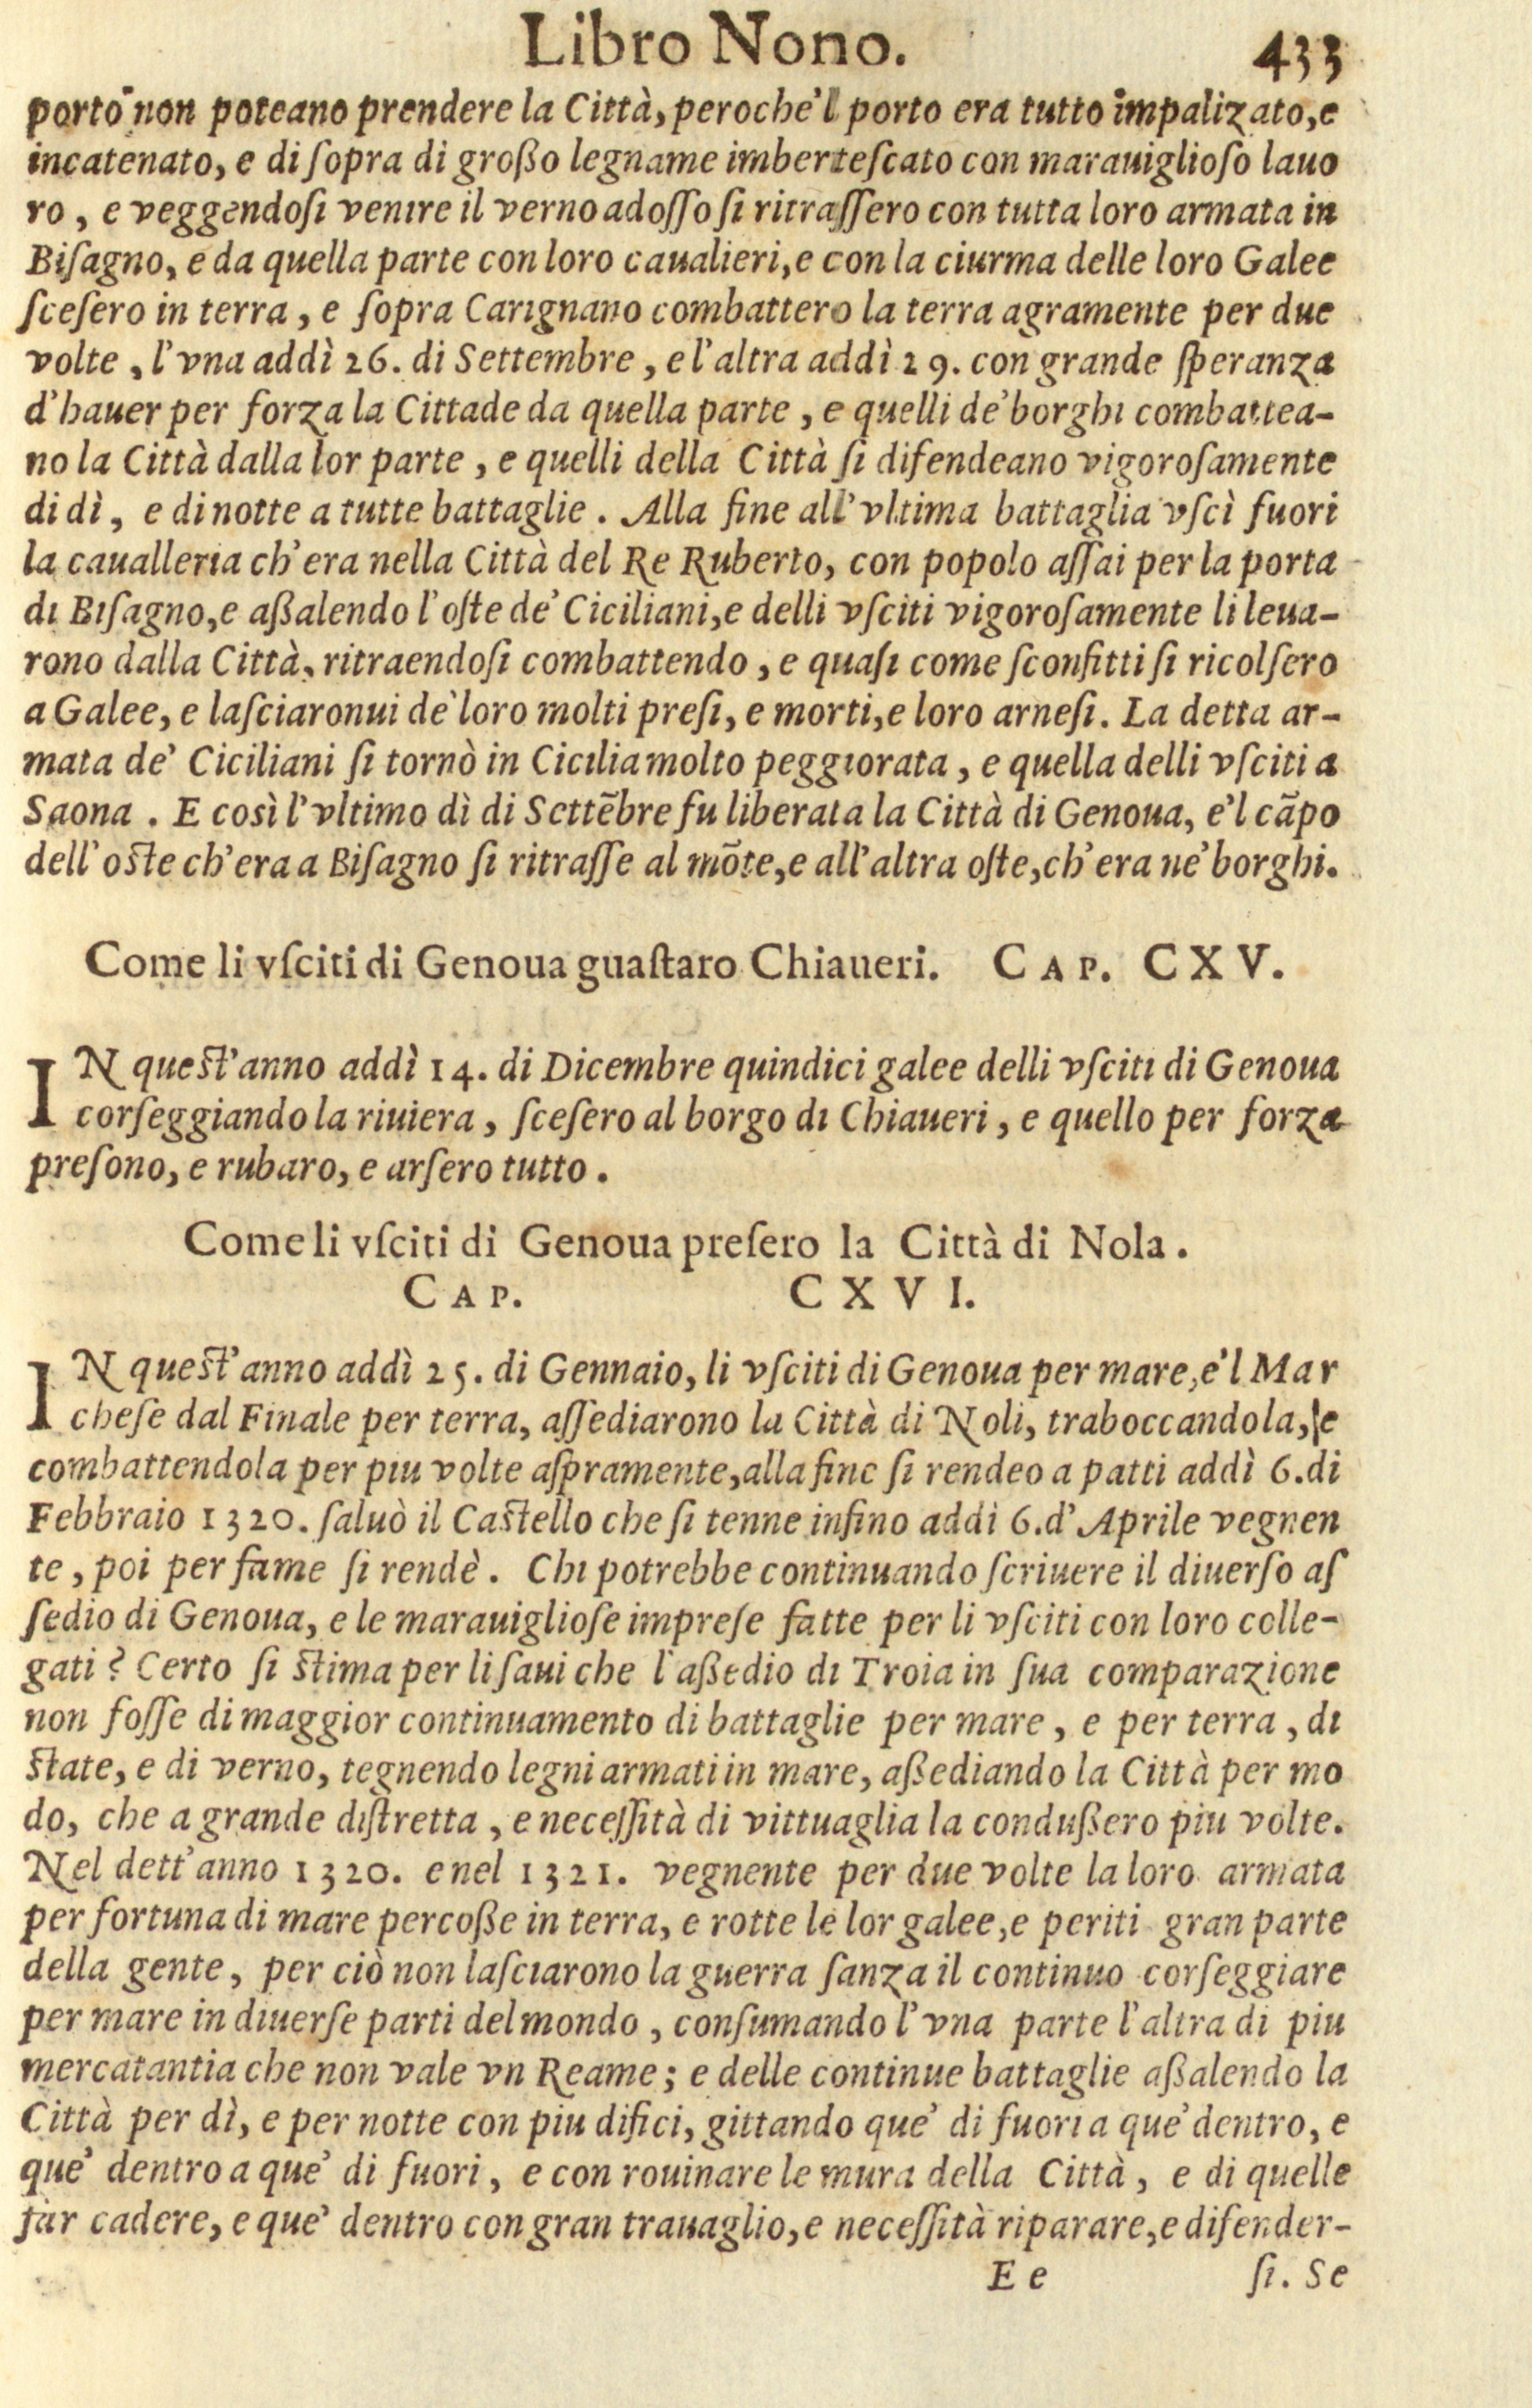 Libro Nono. 433
porto non poteano prendere la Città, peroche'l porto era tutto impalizato, e
incatenato, e di ſopra di großo legname imberteſcato con marauiglioſo lauo
ro, e veggendoſi venire il verno adoſſo ſi ritraſſero con tutta loro armata in
Biſagno, e da quella parte con loro caualieri, e con la ciurma delle loro Galee
ſceſero in terra, e ſopra Carignano combattero la terra agramente per due
volte, l'vna addì 26. di Settembre, e l'altra addì 29. con grande ſperanza
d'hauer per forza la Cittade da quella parte, e quelli de' borghi combattea-
no la Città dalla lor parte, e quelli della Città ſi difendeano vigoroſamente
di dì, e di notte a tutte battaglie. Alla fine all'vltima battaglia vſcì fuori
la caualleria ch'era nella Città del Re Ruberto, con popolo aſſai per la porta
di Biſagno, e aßalendo l'oſte de' Ciciliani, e delli vſciti vigoroſamente li leua-
rono dalla Città, ritraendoſi combattendo, e quaſi come ſconfitti ſi ricolſero
a Galee, e laſciaronui de' loro molti preſi, e morti, e loro arneſi. La detta ar-
mata de' Ciciliani ſi tornò in Cicilia molto peggiorata, e quella delli vſciti a
Saona. E così l'vltimo dì di Settēbre fu liberata la Città di Genoua, e'l cāpo
dell'oſte ch'era a Biſagno ſi ritraſſe al mōte, e all'altra oſte, ch'era ne' borghi.
Come li vſciti di Genoua guaſtaro Chiaueri. CAP. CXV.
IN queſt'anno addì 14. di Dicembre quindici galee delli vſciti di Genoua
corſeggiando la riuiera, ſceſero al borgo di Chiaueri, e quello per forza
preſono, e rubaro, e arſero tutto.
Come li vſciti di Genoua preſero la Città di Nola.
CAP. CXVI.
IN queſt'anno addì 25. di Gennaio, li vſciti di Genoua per mare, e'l Mar
cheſe dal Finale per terra, aſſediarono la Città di Noli, traboccandola, e
combattendola per piu volte aſpramente, alla fine ſi rendeo a patti addì 6. di
Febbraio 1320. ſaluò il Caſtello che ſi tenne infino addì 6. d'Aprile vegnen
te, poi per fame ſi rendè. Chi potrebbe continuando ſcriuere il diuerſo aſ
ſedio di Genoua, e le marauiglioſe impreſe fatte per li vſciti con loro colle-
gati? Certo ſi ſtima per li ſaui che l'aßedio di Troia in ſua comparazione
non foſſe di maggior continuamento di battaglie per mare, e per terra, di
ſtate, e di verno, tegnendo legni armati in mare, aßediando la Città per mo
do, che a grande diſtretta, e neceſſità di vittuaglia la condußero piu volte.
Nel dett'anno 1320. e nel 1321. vegnente per due volte la loro armata
per fortuna di mare percoße in terra, e rotte le lor galee, e periti gran parte
della gente, per ciò non laſciarono la guerra ſanza il continuo corſeggiare
per mare in diuerſe parti del mondo, conſumando l'vna parte l'altra di piu
mercatantia che non vale vn Reame; e delle continue battaglie aßalendo la
Città per dì, e per notte con piu difici, gittando que' di fuori a que' dentro, e
que' dentro a que' di fuori, e con rouinare le mura della Città, e di quelle
far cadere, e que' dentro con gran trauaglio, e neceſſità riparare, e difender-
Ee ſi. Se